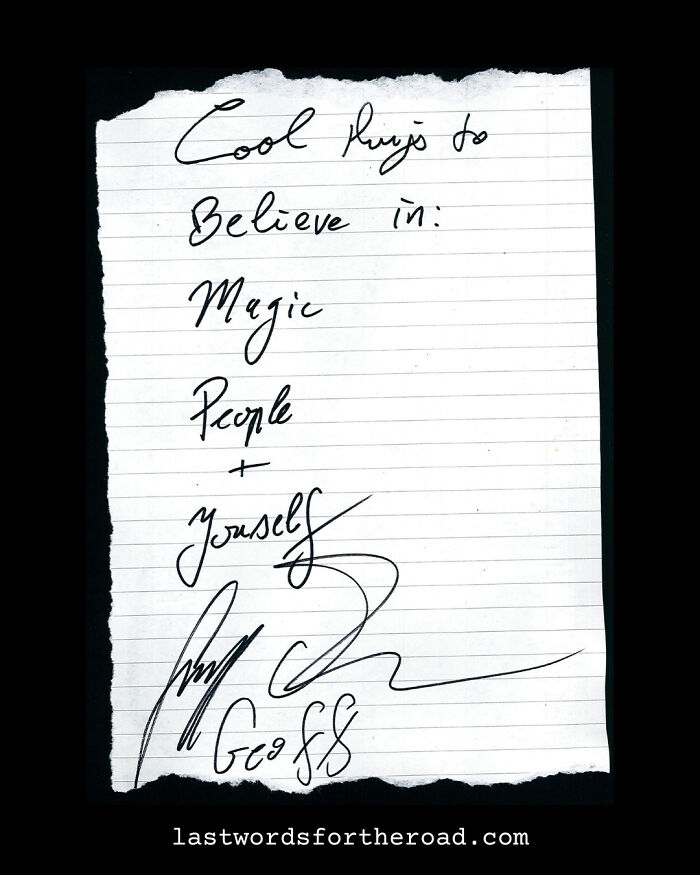 Cool things to
Believe in:
Magic
People
+
Youself
Geoff
lastwordsfortheroad.com